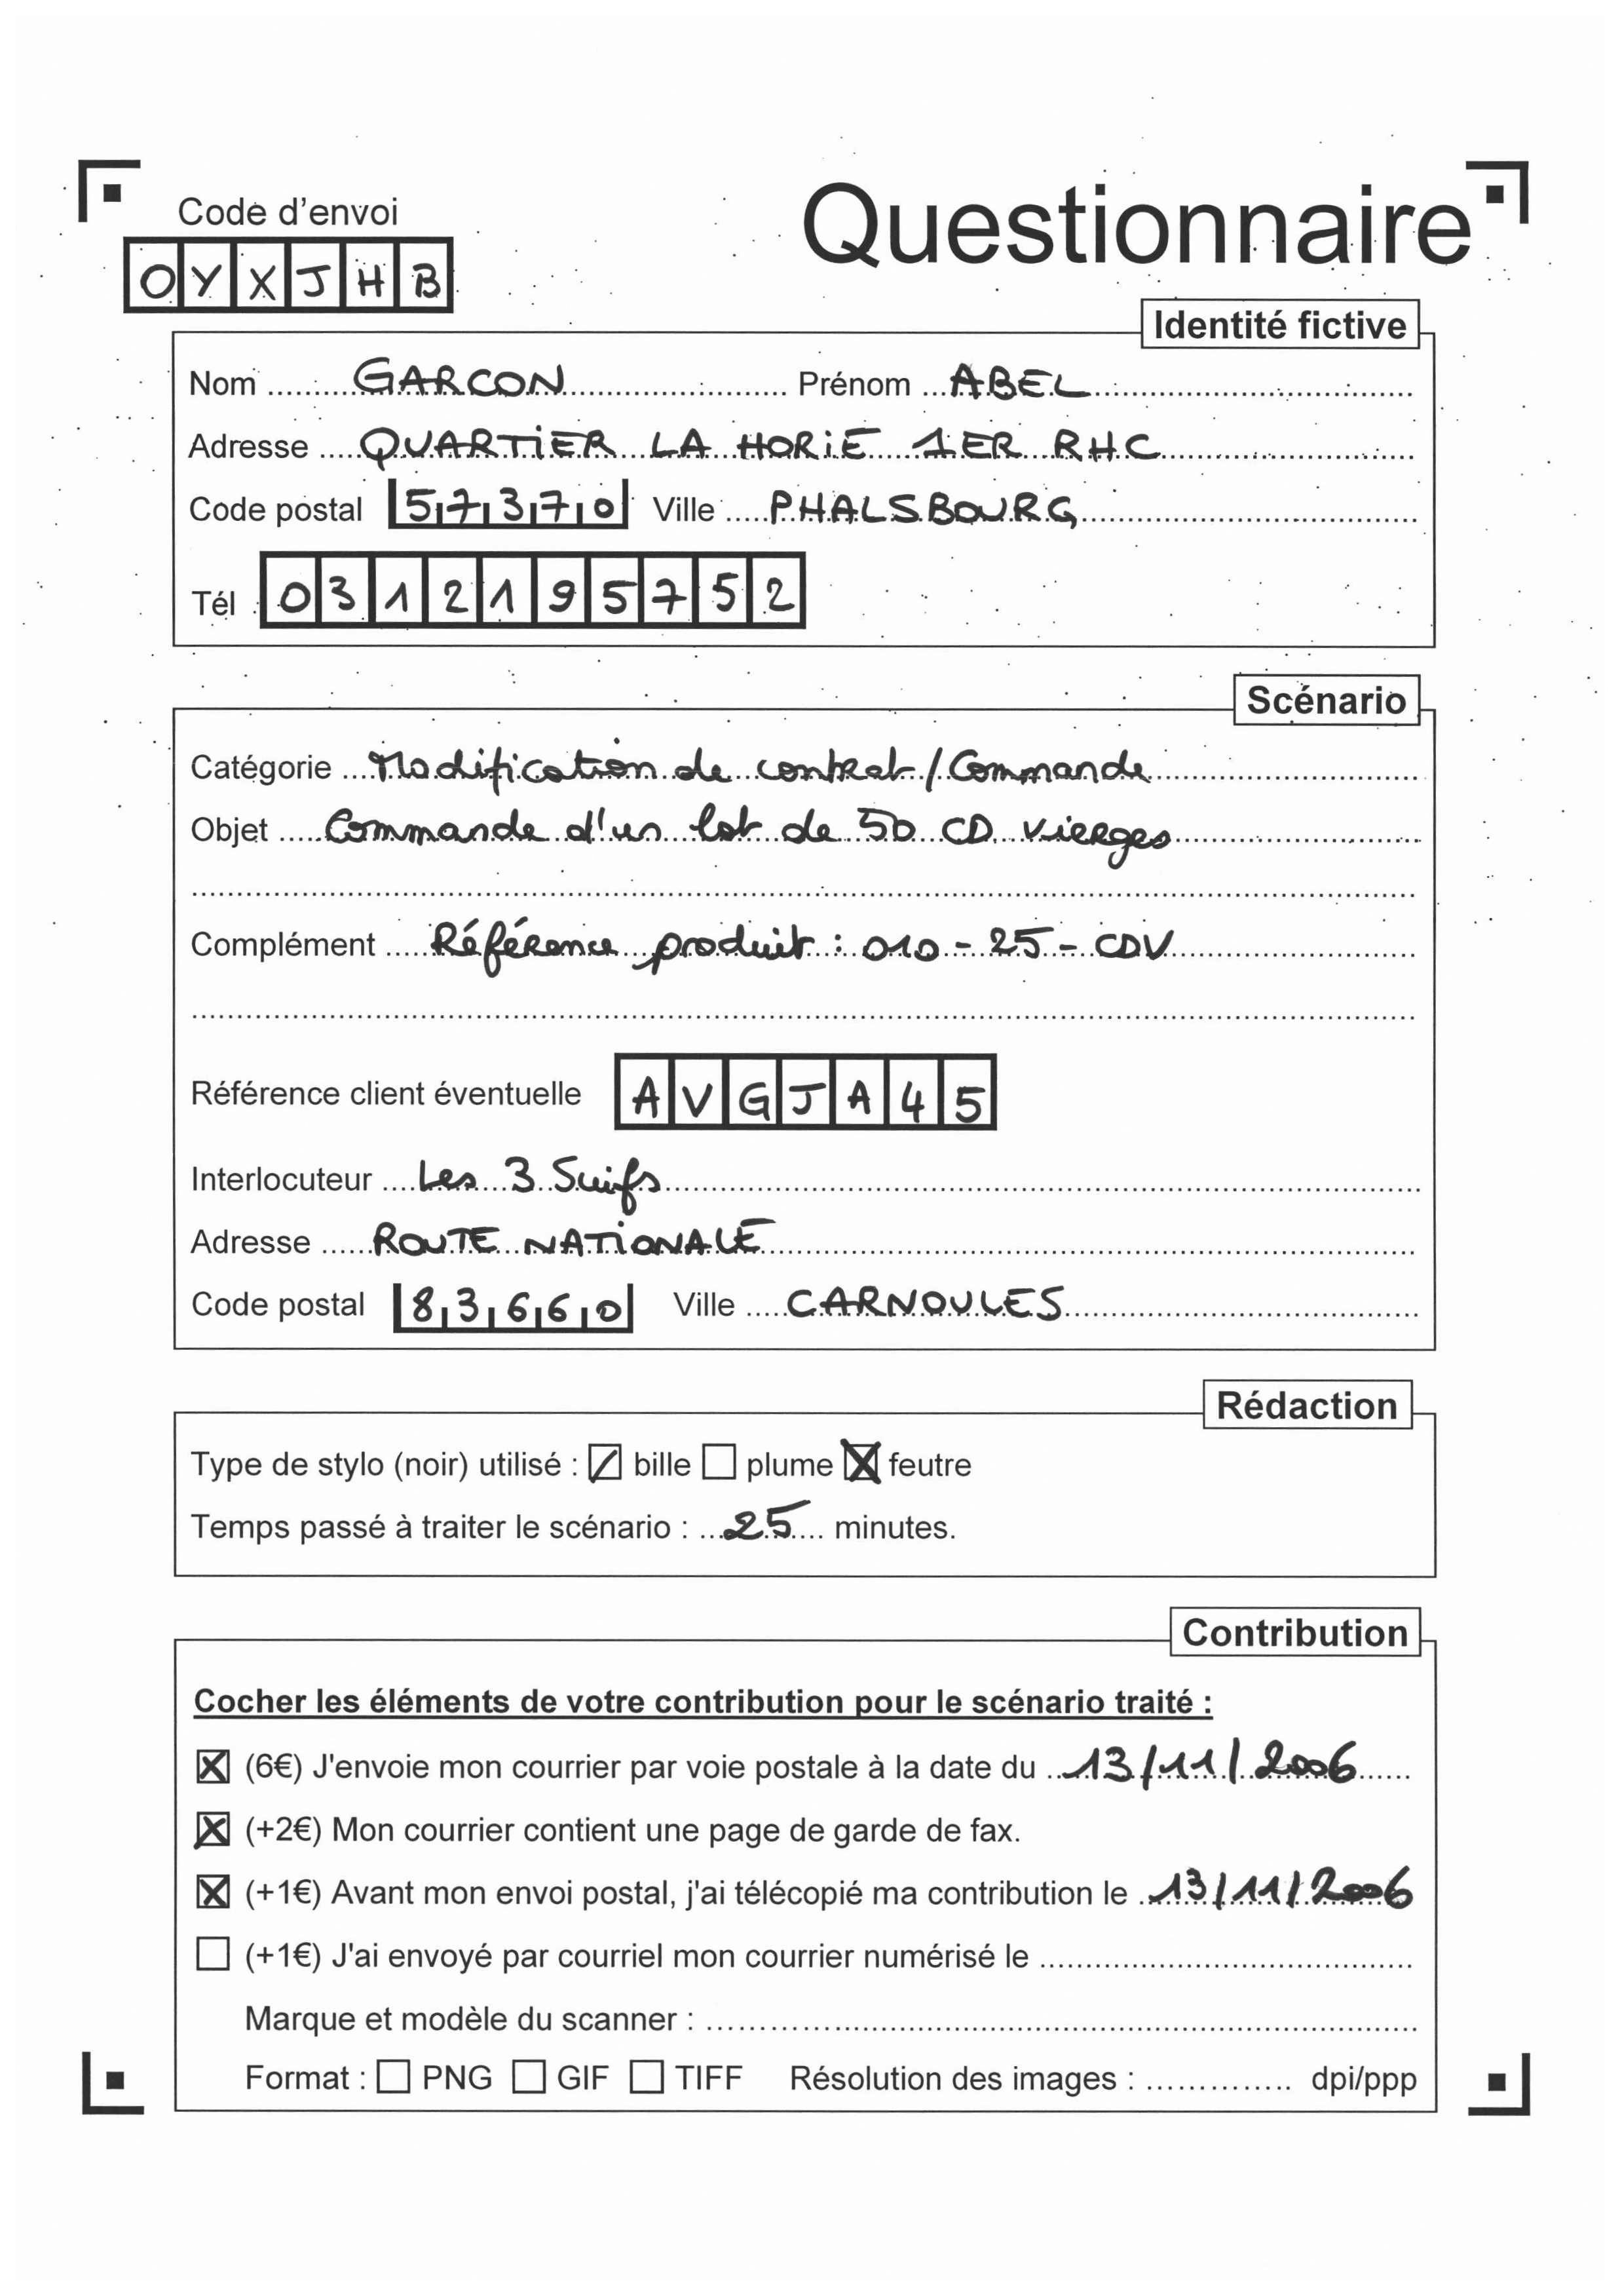 Questionnaire
Code d'envoi
OYXJHB
Identité fictive
Nom GARCON Prénom ABEL
Adresse QUARTIER LA HORIE 1ER RHC
Code postal 57370 Ville PHALSBOURG
Tél 0312195752
Scénario
Catégorie Modification de contrat / Commande
Objet Commande d'un lot de 50 CD vierges
Complément Référence produit : 010 - 25 - CDV
Référence client éventuelle AVGJA45
Interlocuteur Les 3 Suifs
Adresse ROUTE NATIONALE
Code postal 83660 Ville CARNOULES
Rédaction
Type de stylo (noir) utilisé : bille plume feutre
Temps passé à traiter le scénario : 25 minutes.
Contribution
Cocher les éléments de votre contribution pour le scénario traité :
(6€) J'envoie mon courrier par voie postale à la date du 13/11/2006
(+2€) Mon courrier contient une page de garde de fax.
(+1€) Avant mon envoi postal, j'ai télécopié ma contribution le 13/11/2006
(+1€) J'ai envoyé par courriel mon courrier numérisé le
Marque et modèle du scanner :
Format : PNG GIF TIFF Résolution des images : dpi/ppp